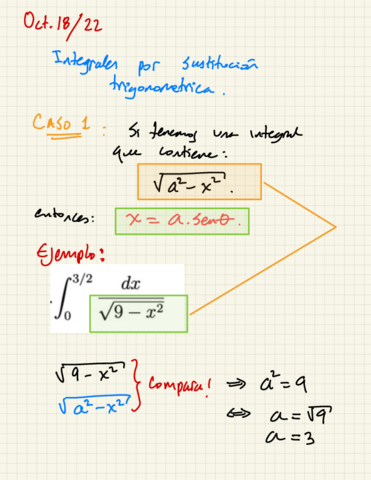 Oct. 18/22
Integrales por sustitución
trigonometrica.
CASO 1: Si tenemos una integral
que contiene:
√a²-x².
entonces: x = a.senθ.
Ejemplo:
∫₀^{3/2} dx/√9 − x²
√9-x²
√a²-x² } Compara! ⇒ a² = 9
⇔ a = √9
a = 3